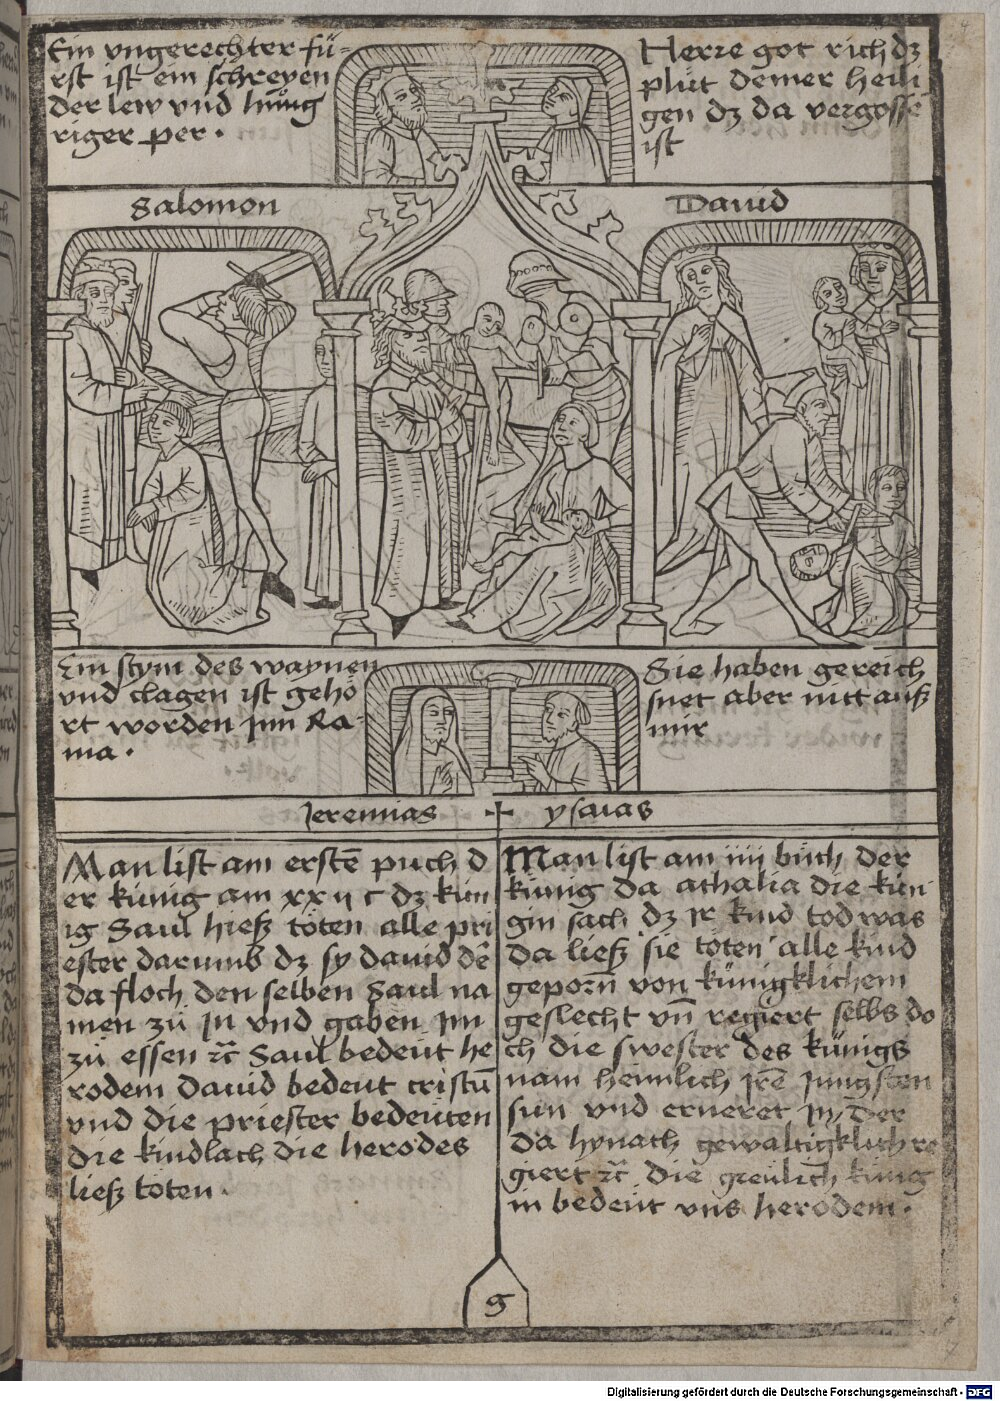 Ein vngerechter fü-
rst ist ein schreyen
der lew vnd hu̇ng
riger per .
Herre got rich dz
plu̇t deiner heili
gen dz da vergossē
ist
Salomon
Dauid
Ein stym des waynen
vnd clagen ist gehö
rt worden jnn Ra-
ma .
Sie haben gereich
snet aber nitt auß
mir
Jeremias + ysaias
Man list am erstē pu̇ch d
er künig am xxij c dz kün
ig Saul hieß töten alle pri
ester darumb dz sy dauid dē
da floch den selben Saul na
men zu̇ jn vnd gaben jm
zu̇ essen rc̄ Saul bedeüt he
rodem dauid bedeüt cristū
vnd die priester bedeüten
die kindlach die herodes
ließ töten .
Man list am iiij bu̇ch der
künig da athalia die kün
gin sach dz jr kind tod was
da ließ sie töten alle kind
geporn̄ von künigklichem
geslecht vn̄ regiert selbs do
ch die swester des künigs
nam heimlich jrē jungsten
sun vnd erneret jn / der
da hynach gewaltigklich re
giert rc̄ die greülich künig
in bedeüt vns herodem .
g
Digitalisierung gefördert durch die Deutsche Forschungsgemeinschaft - DFG